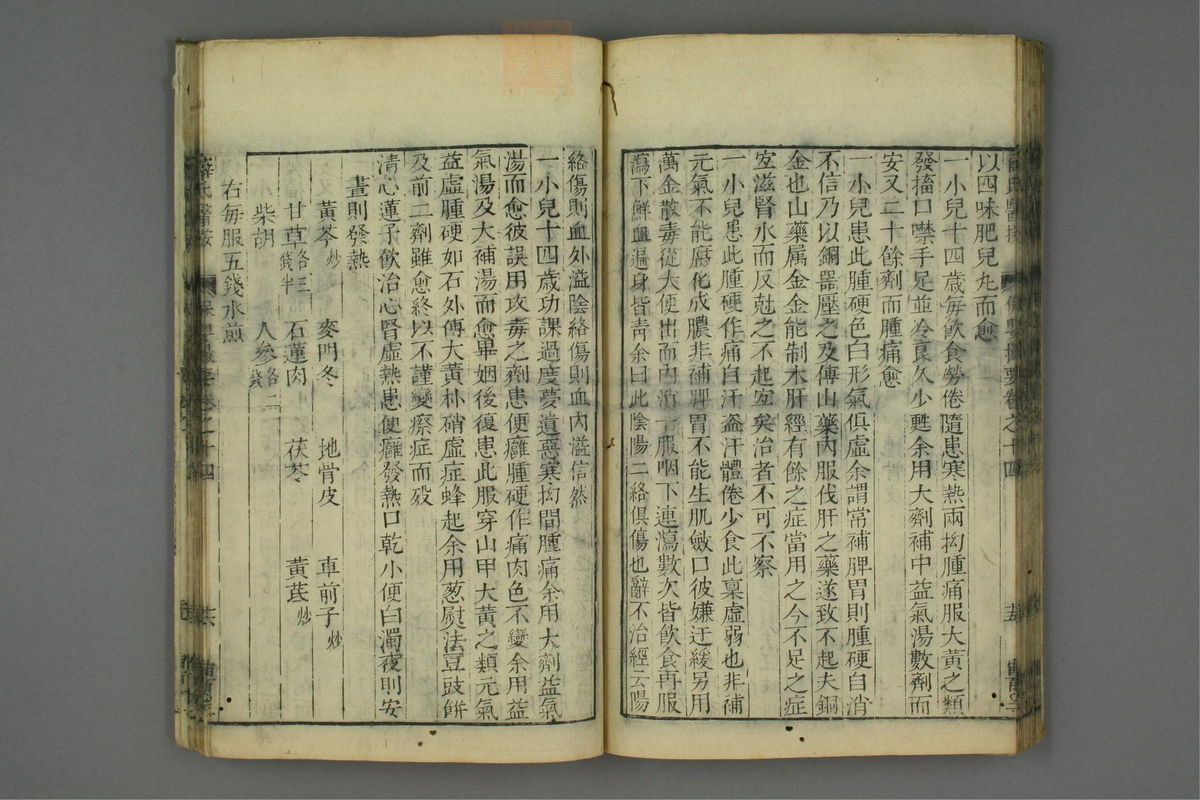 以四味肥兒丸而愈
一小兒十四歲每飲食勞倦隨患寒熱兩拗腫痛服大黃之類
發搐口噤手足並冷良久少甦余用大劑補中益氣湯數劑而
安又二十餘劑而腫痛愈
一小兒患此腫硬色白形氣俱虛余謂常補脾胃則腫硬自消
不信乃以銅器壓之及傅山藥內服伐肝之藥遂致不起夫銅
金也山藥属金金能制木肝經有餘之症當用之今不足之症
宜滋腎水而反尅之不起宜矣治者不可不察
一小兒患此腫硬作痛自汗盗汗體倦少食此稟虛弱也非補
元氣不能腐化成膿非補脾胃不能生肌斂口彼嫌迂緩另用
萬金散毒從大便出而內消一服咽下連瀉數次皆飲食再服
瀉下鮮血遍身皆青余曰此陰陽二絡俱傷也辭不治經云陽
絡傷則血外溢陰絡傷則血內溢信然
一小兒十四歲功課過度夢遺惡寒拗間腫痛余用大劑益氣
湯而愈彼誤用攻毒之劑患便癰腫硬作痛肉色不變余用益
氣湯及大補湯而愈畢姻後復患此服穿山甲大黃之類元氣
益虛腫硬如石外傅大黃朴硝虛症蜂起余用葱熨法豆豉餅
及前二劑雖愈終以不謹變瘵症而歿
清心蓮子飲治心腎虛熱患便癰發熱口乾小便白濁夜則安
晝則發熱
黃芩炒 麥門冬 地骨皮 車前子炒
甘草各三錢半 石蓮肉 茯苓 黃茋炒
柴胡 人參各二錢
右每服五錢水煎
薛氏醫按 保嬰撮要卷之十四